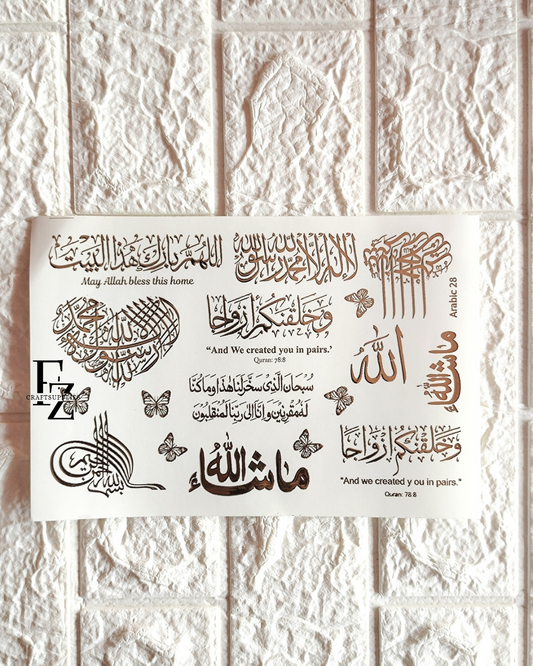 اللهم بارك هذا البيت
May Allah bless this home
لا إله إلا الله محمد رسول الله
Arabic 28
وخلقنكم أزواجا
"And We created you in pairs.'
Quran: 78:8
الله
ما شاء الله
سبحان الذي سخر لنا هذا وما كنا
له مقرنين وإنا إلى ربنا لمنقلبون
FZ
CRAFTSUPPLIES
بسم الله الرحمن الرحيم
ما شاء الله
وخلقنكم أزواجا
"And we created y ou in pairs."
Quran: 78:8